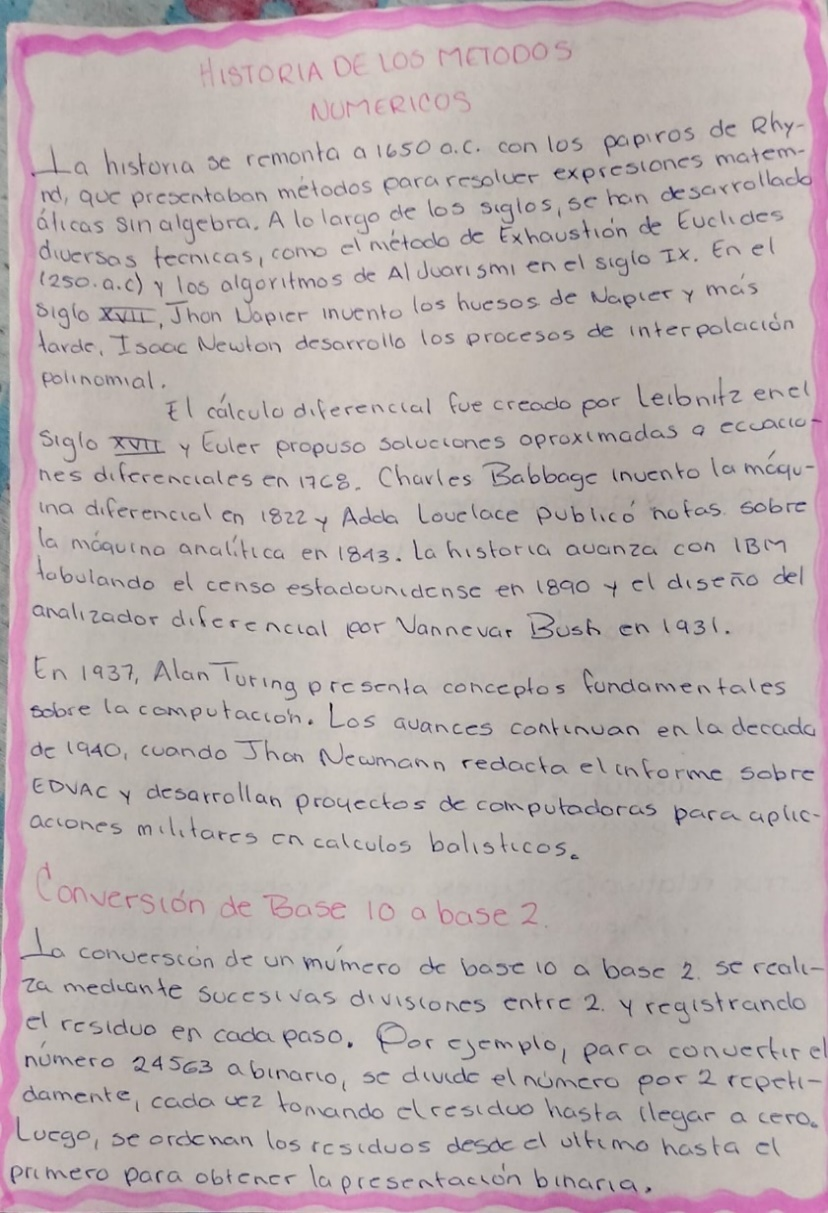 HISTORIA DE LOS METODOS
NUMERICOS
La historia se remonta a 1650 a.c. con los papiros de Rhy-
nd, que presentaban métodos para resolver expresiones matem-
áticas sin algebra. A lo largo de los siglos, se han desarrollado
diversas tecnicas, como el método de Exhaustión de Euclides
(250.a.c) y los algoritmos de Al Juarismi en el siglo IX. En el
siglo XVII, Jhon Napier invento los huesos de Napier y más
tarde, Isaac Newton desarrollo los procesos de interpolación
polinomial.
El cálculo diferencial fue creado por Leibnitz en el
siglo XVII y Euler propuso soluciones aproximadas a ecuacio-
nes diferenciales en 1768. Charles Babbage invento la máqu-
ina diferencial en 1822 y Adda Lovelace publicó notas. sobre
la máquina analítica en 1843. La historia avanza con IBM
tabulando el censo estadounidense en 1890 y el diseño del
analizador diferencial por Vannevar Bush en 1931.
En 1937, Alan Turing presenta conceptos fundamentales
sobre la computación. Los avances continuan en la decada
de 1940, cuando Jhon Newmann redacta el informe sobre
EDVAC y desarrollan proyectos de computadoras para aplic-
aciones militares en calculos balisticos.
Conversión de Base 10 a base 2.
La conversión de un múmero de base 10 a base 2. se reali-
za mediante sucesivas divisiones entre 2. y registrando
el residuo en cada paso. Por ejemplo, para convertir el
número 24563 a binario, se divide el número por 2 repeti-
damente, cada vez tomando el residuo hasta llegar a cero.
Luego, se ordenan los residuos desde el ultimo hasta el
primero para obtener la presentación binaria.